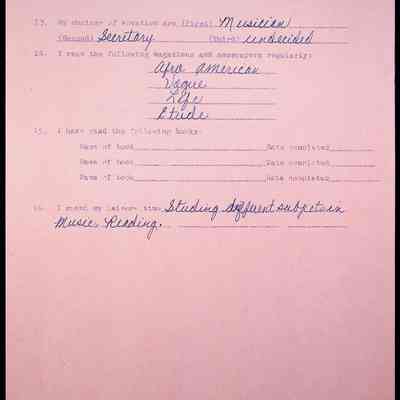 13. My choices of vocation are (First) Musician
(Second) Secretary (Third) undecided
14. I read the following magazines and newspapers regularly:
Afro American
Vogue
Life
Etude
15. I have read the following books:
Name of book Date completed
Name of book Date completed
Name of book Date completed
16. I spend my leisure time Studing different subjets in
Music, Reading.